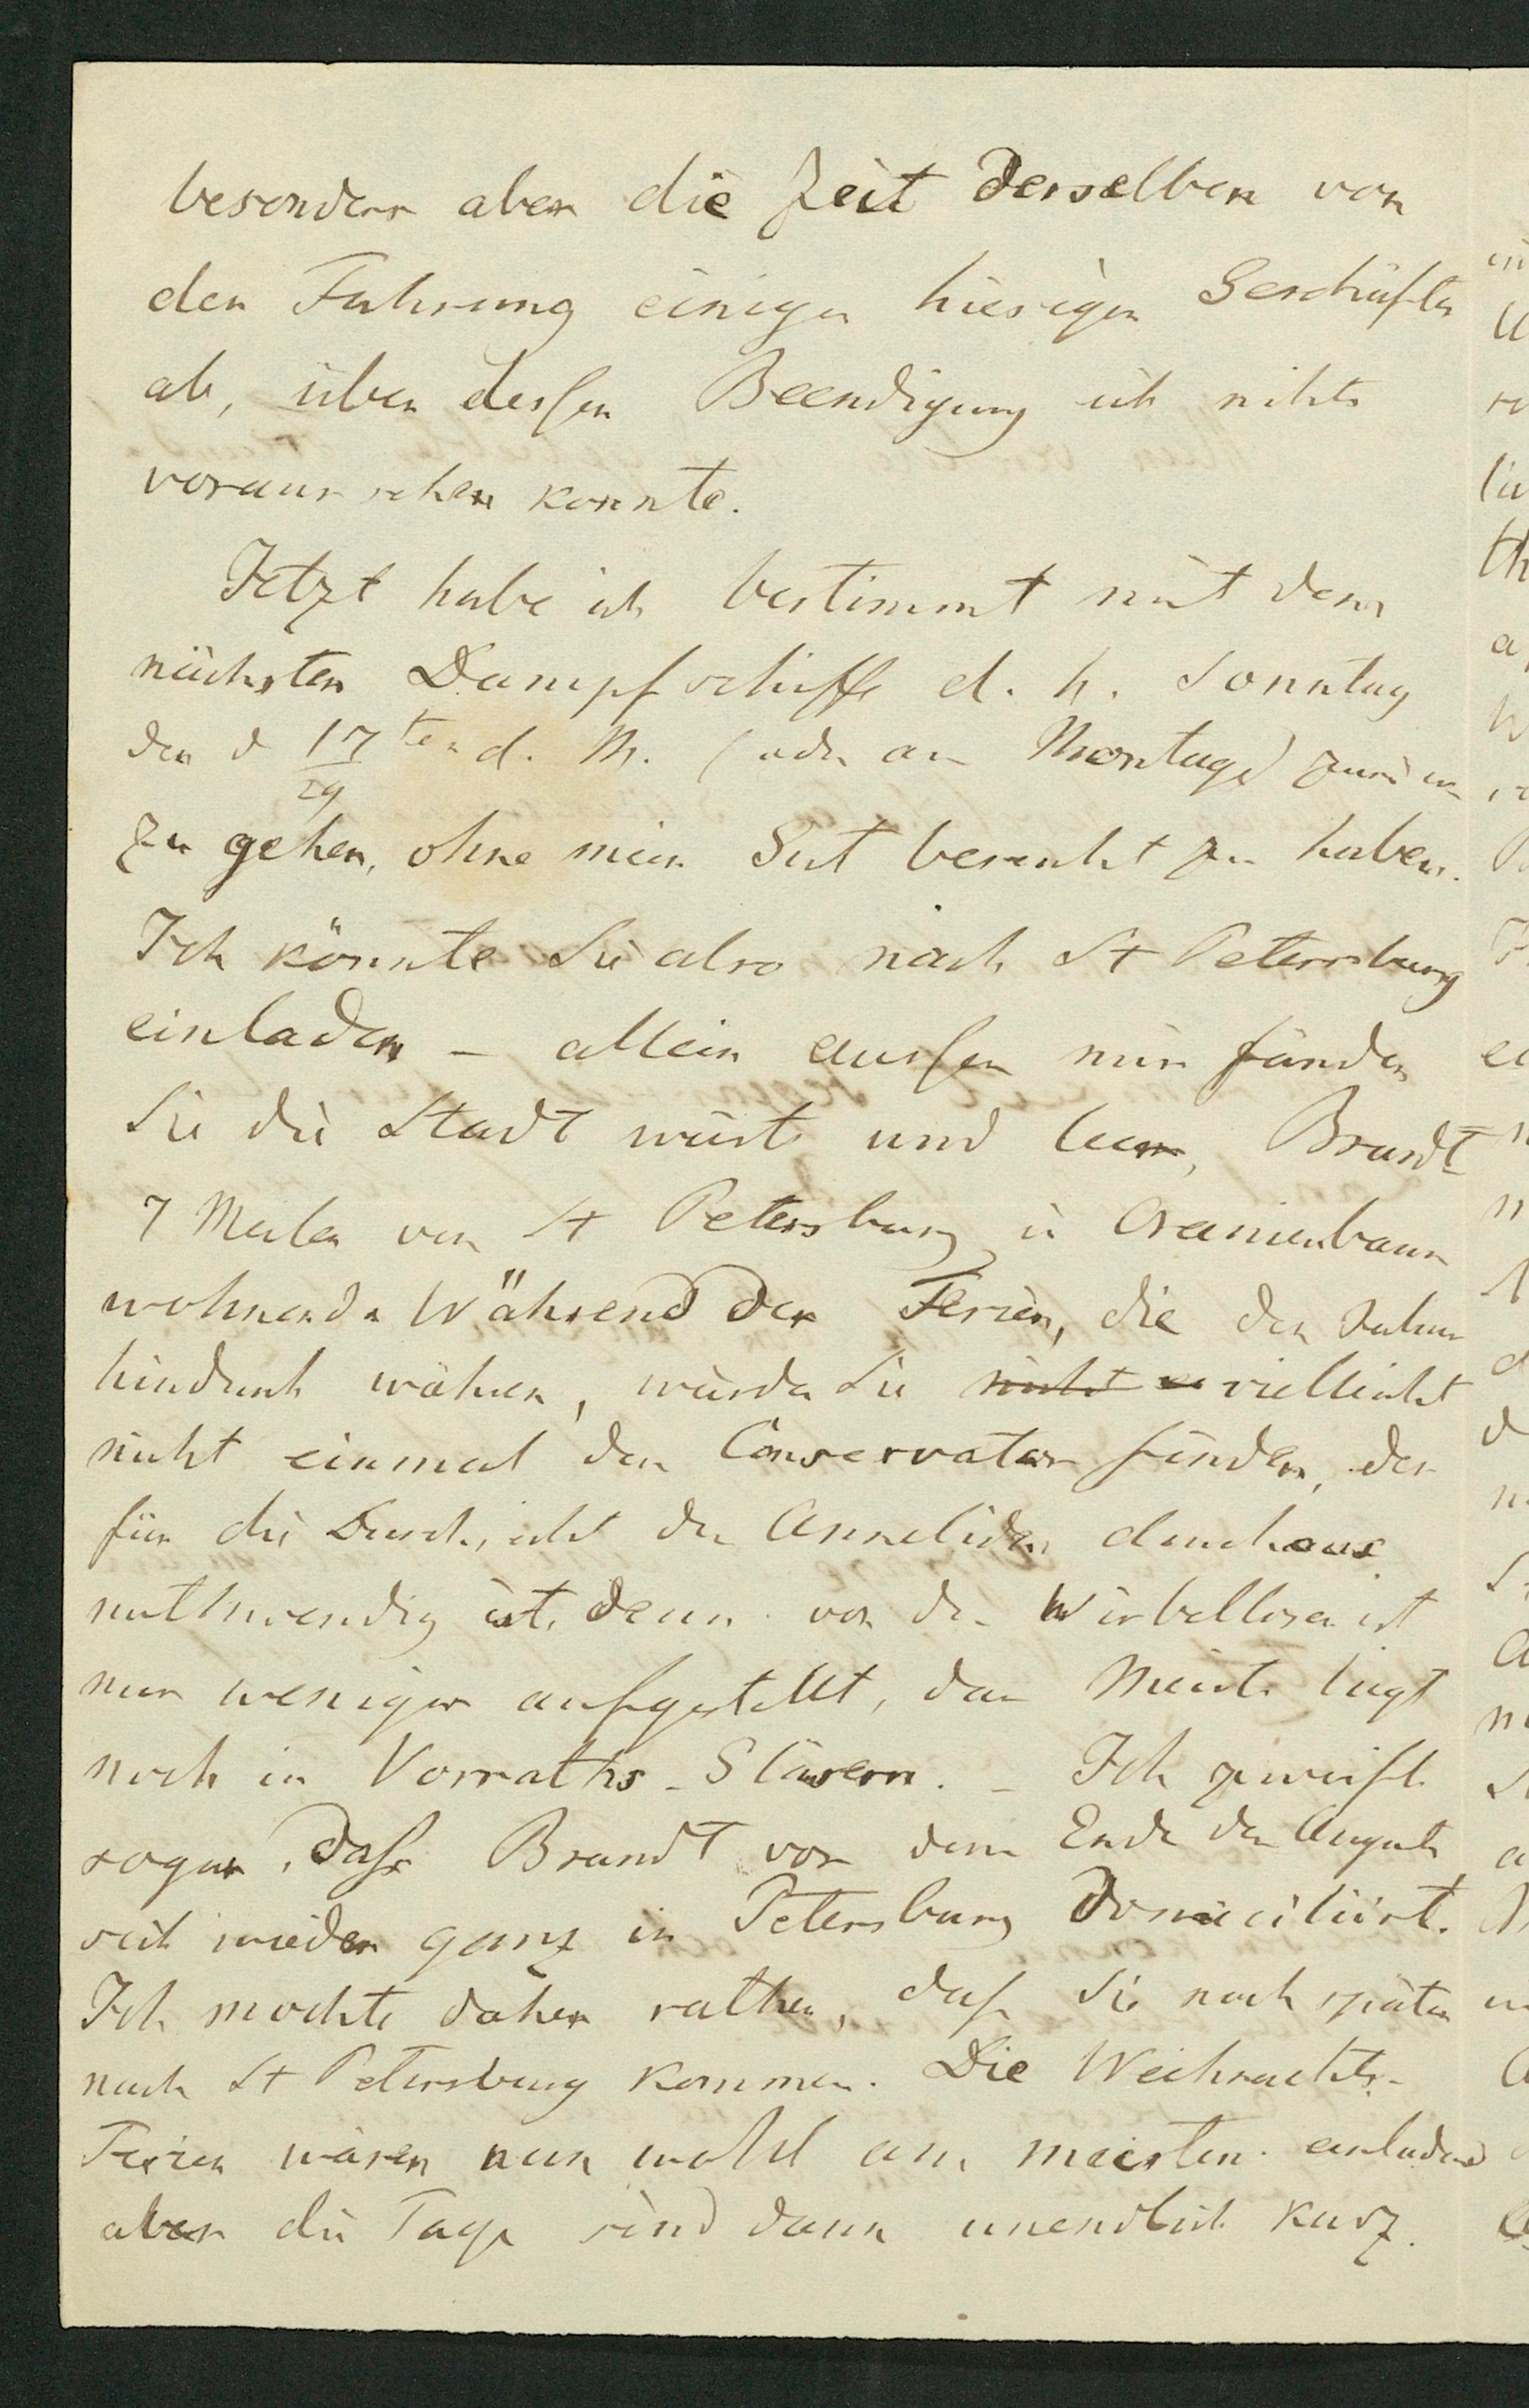 besonders aber die Zeit derselben von
der Fuhrung einiger hiesigen Geschäfte
ab, über dessen Beendigung ich nichts
voraus sehen konnte.
Jetzt habe ich bestimmt mit dem
nächsten Dampfschiffe d. h. Sonntag
den d 17/29 ten d. M. (oder am Montage) zurück
zu gehen, ohne mein Gut besucht zu haben.
Ich könnte Sie also nach St Petersburg
einladen – allein aussen mir fänden
Sie die Stadt wüst und leer, Brandt
7 Meilen von St Petersburg in Oranienbaum
wohnend. Während der Ferien, die den Julius
hindurch währen, würden Sie nicht vielleicht
nicht einmal den Conservator finden, der
für die Durchsicht der Anneliden durchaus
nothwendig ist, denn von den Wirbellosen ist
nur weniges aufgestellt, das Meiste liegt
noch in Vorraths-Gläsern. – Ich zweifle
sogar, dass Brandt vor dem Ende des Augusts
sich wieder ganz in Petersburg domiciliirt.
Ich mochte daher rathen, dass Sie noch später
nach St Petersburg kommen. Die Weihnachts-
Ferien wären nun wohl am meisten einladend
aber die Tage sind dann unendlich kurz.